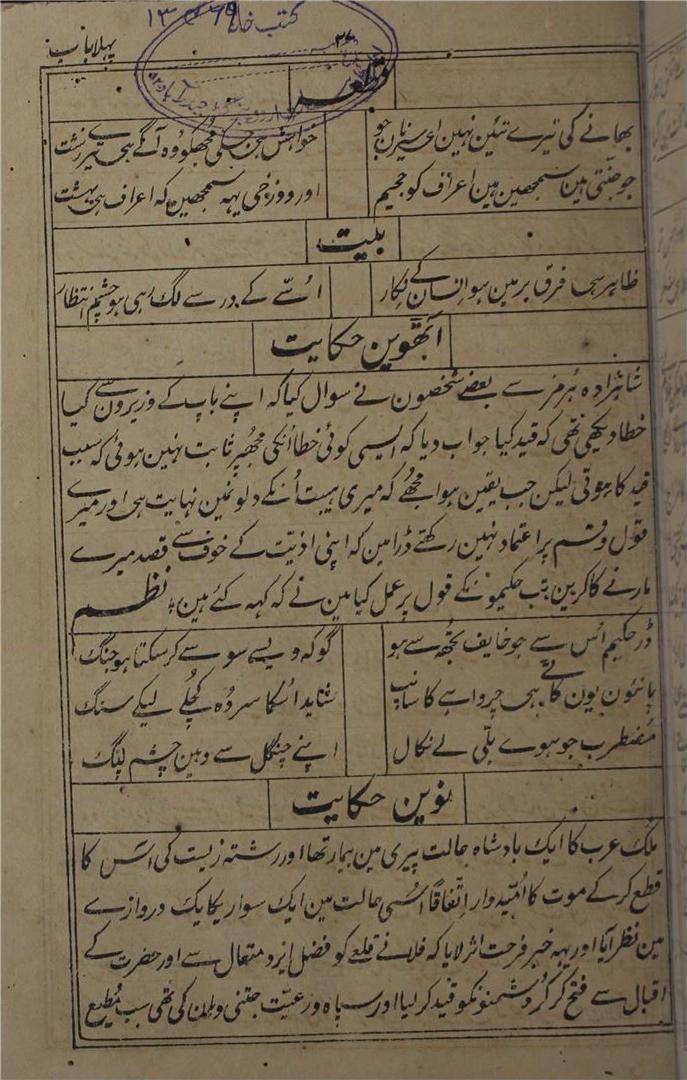 پہلا باب
۲۷
کتب خانہ
قطعہ
بھانے کی تیرے تئین نہین اے سیر نان جو
خواہش ہے جسکی مجھکو وہ آگے ہی تیرے زشت
جو جنتی ہین سمجھین ہین اعراف کو جحیم
اور دوزخی یہہ سمجھین کہ اعراف ہی بہشت
بیت
ظاہر ہی فرق بر مین ہو انسان کے نگار
اُسّے کے در سے لگ رہی ہو چشم انتظار
آٹھوین حکایت
شاہزادہ ہُرمز سے بعضے شخصون نے سوال کیا کہ اپنے باپ کے وزیرون سے کیا
خطا دیکھی تھی کہ قید کیا جواب دیا کہ ایسی کوئی خطا اُنکی مجھپر ثابت نہین ہوئی کہ سبب
قید کا ہوتی لیکن جب یقین ہوا مجھے کہ میری ہیبت اُنکے دلونمین نہایت ہی اور میرے
قول و قسم پر اعتماد نہین رکھتے ڈرا مین کہ اپنی اذیّت کے خوف سے قصد میرے
مارنے کا کرین تب حکیمونکے قول پر عمل کیا مین نے کہ کہہ گئے ہین نظم
ڈر حکیم اُس سے جو خایف تجھہ سے ہو
گو کہ ویسے سو سے کر سکتا ہو جنگ
پانئون یون کاٹے ہی چرواہے کا سانپ
شاید اُسکا سر وہ کچلے لیکے سنگ
مضطرب جو ہووے بلّی لے نکال
اپنے چنگل سے وہین چشم پلنگ
نوین حکایت
ملک عرب کا ایک بادشاہ حالت پیری مین بیمار تھا اور رشتہ زیست کی آس کا
قطع کر کے موت کا اُمّیدوار اتّفاقاً اُسی حالت مین ایک سوار یکایک دروازے
مین نظر آیا اور یہہ خبر فرحت اثر لایا کہ فلانے قلعے کو فضل ایزد متعال سے اور حضرت کے
اقبال سے فتح کر کر دشمنونکو قید کر لیا اور سپاہ و رعیّت جتنی وہان کی تھی سب مُطیع